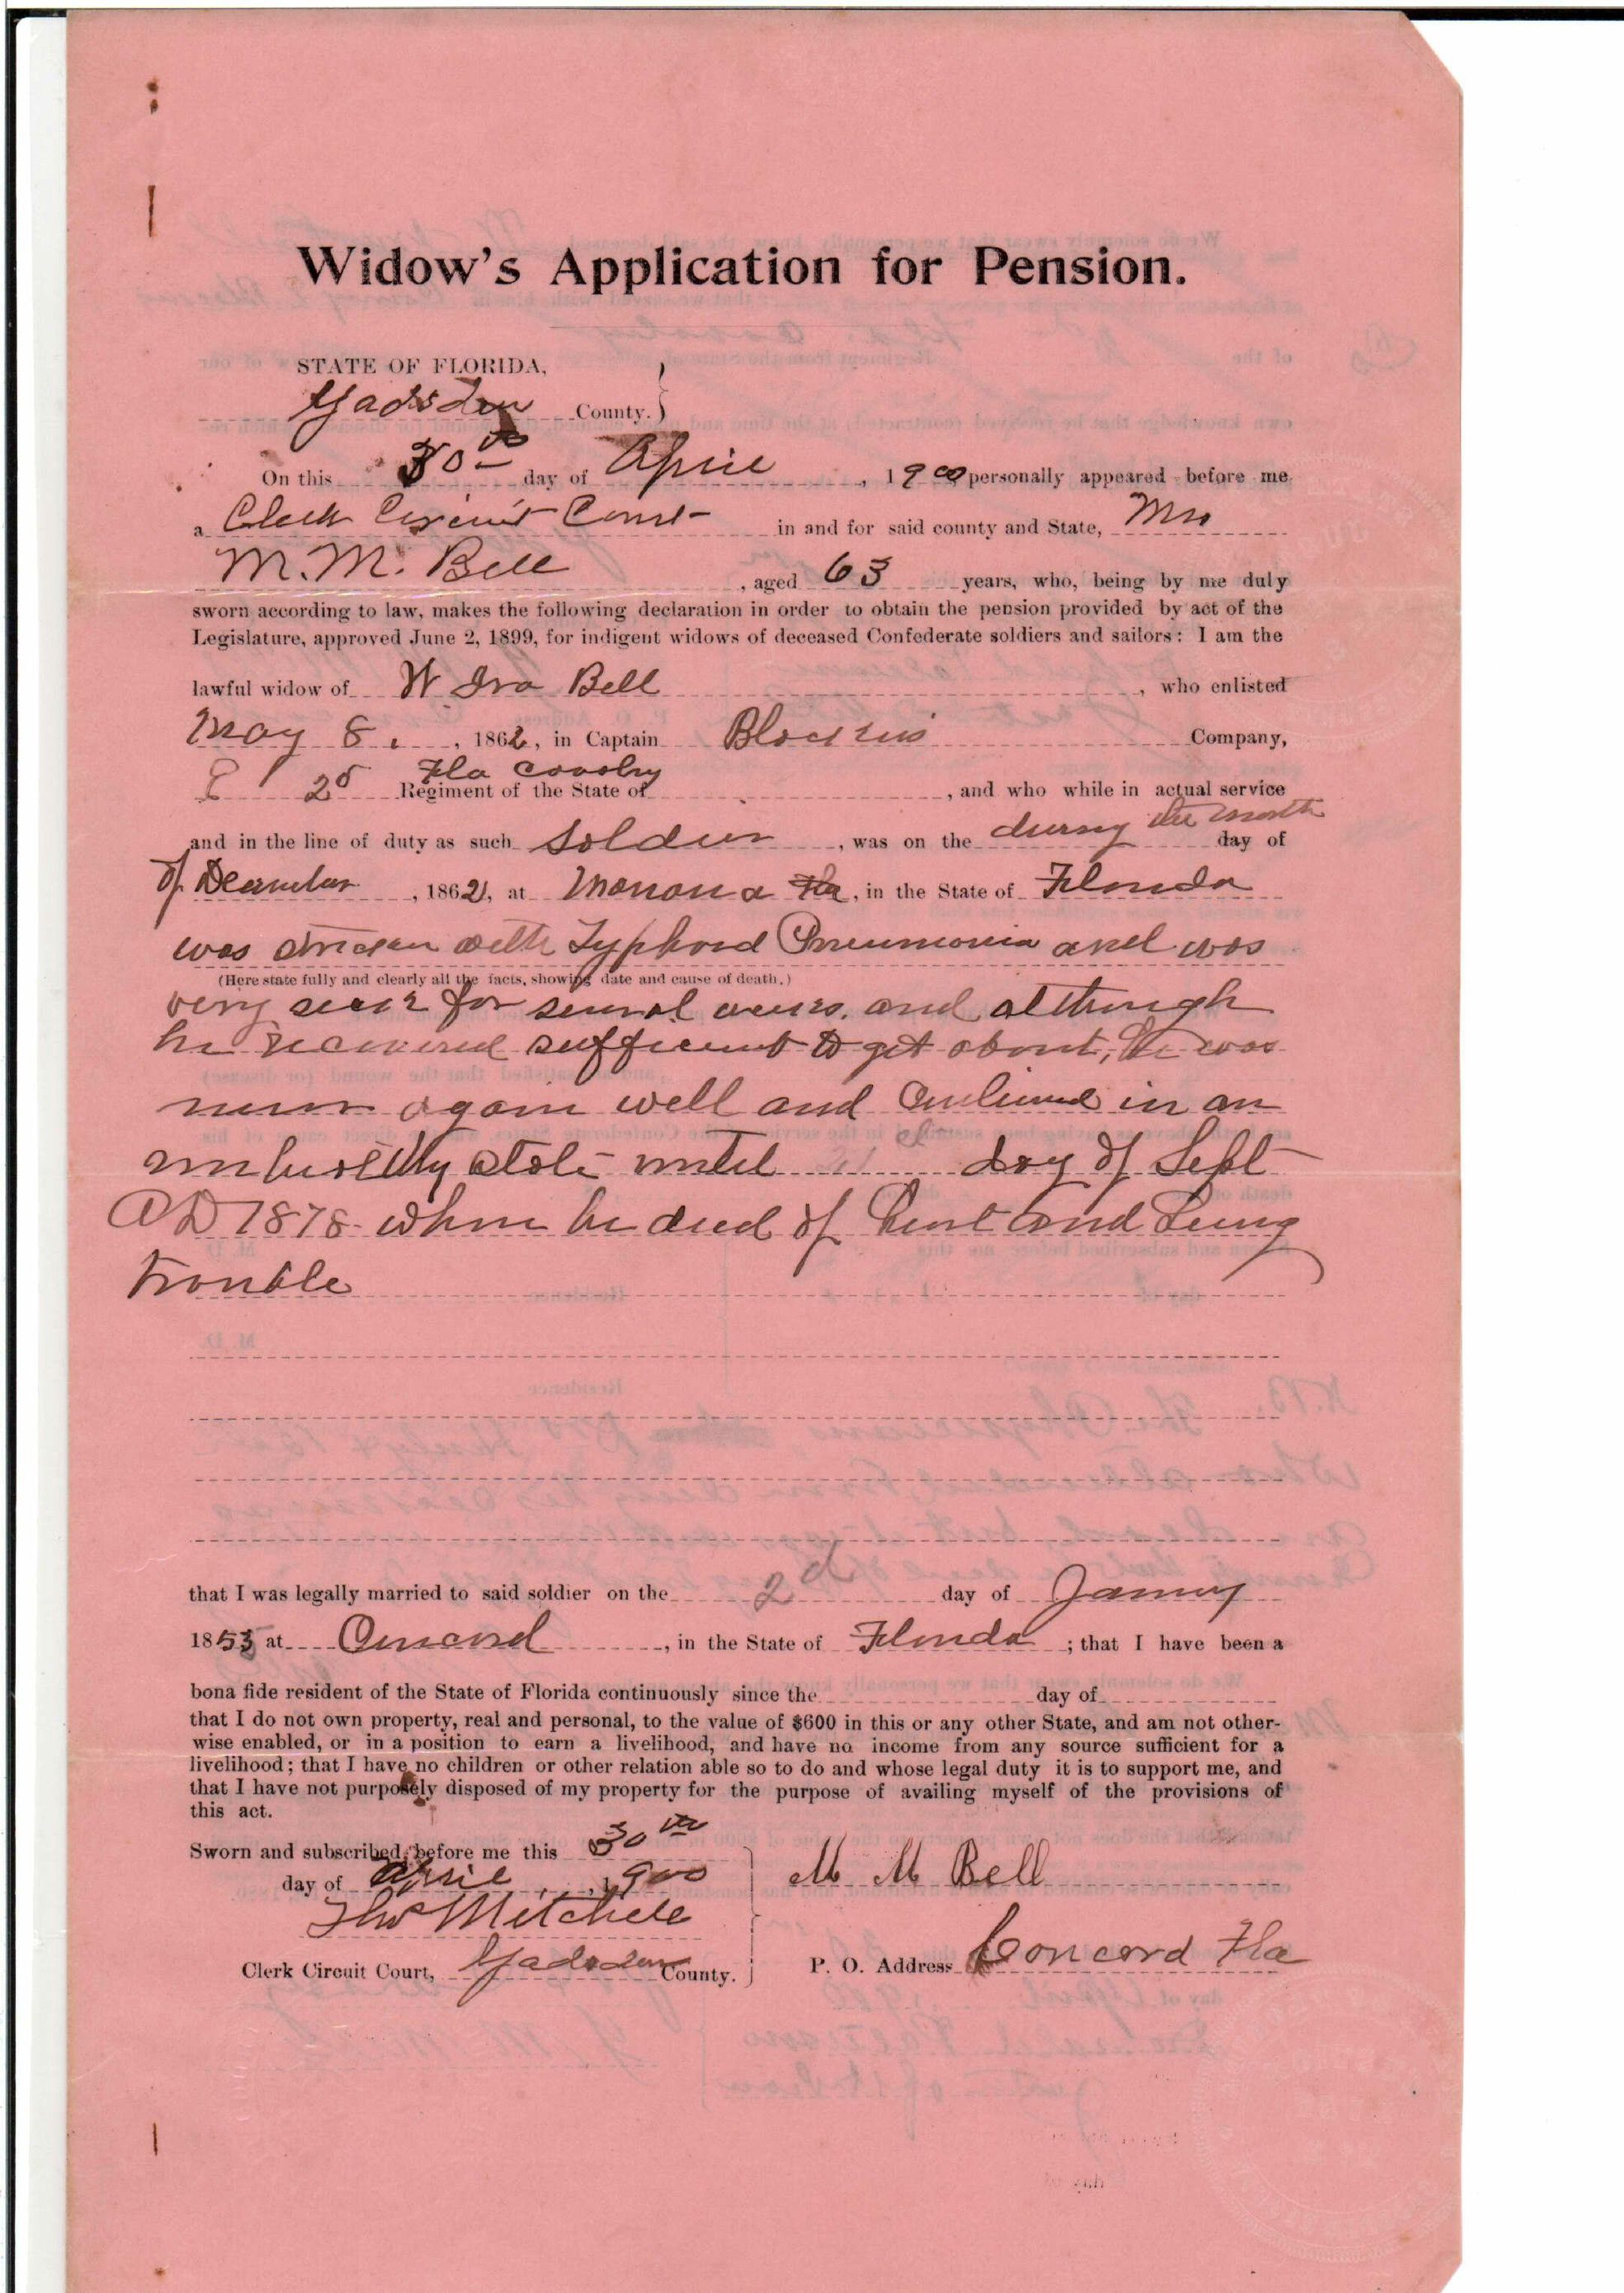 Widow's Application for Pension.
STATE OF FLORIDA,
Gadsden County.
On this 30th day of April, 1900 personally appeared before me
a Clerk Circuit Court in and for said county and State, Mrs
M. M. Bell, aged 63 years, who, being by me duly
sworn according to law, makes the following declaration in order to obtain the pension provided by act of the
Legislature, approved June 2, 1899, for indigent widows of deceased Confederate soldiers and sailors: I am the
lawful widow of W Ira Bell, who enlisted
May 8., 1862, in Captain Company,
2d Fla Cavalry Regiment of the State of, and who while in actual service
and in the line of duty as such Soldier, was on the during the month day of
of December, 1862, at in the State of Florida
was stricken with Typhoid Pneumonia and was
(Here state fully and clearly all the facts, showing date and cause of death.)
very sick for several and although
he recovered sufficient to get about, he was
never again well and in an
state until day of Sept
AD 1878 when he died of heart and Lung
trouble
that I was legally married to said soldier on the 2d day of January
1853 at Concord, in the State of Florida; that I have been a
bona fide resident of the State of Florida continuously since the day of
that I do not own property, real and personal, to the value of $600 in this or any other State, and am not other-
wise enabled, or in a position to earn a livelihood, and have no income from any source sufficient for a
livelihood; that I have no children or other relation able so to do and whose legal duty it is to support me, and
that I have not purposely disposed of my property for the purpose of availing myself of the provisions of
this act.
Sworn and subscribed before me this 30th
day of April, 1900
M M Bell
Thos Mitchell
Clerk Circuit Court, Gadsden County.
P. O. Address Concord Fla